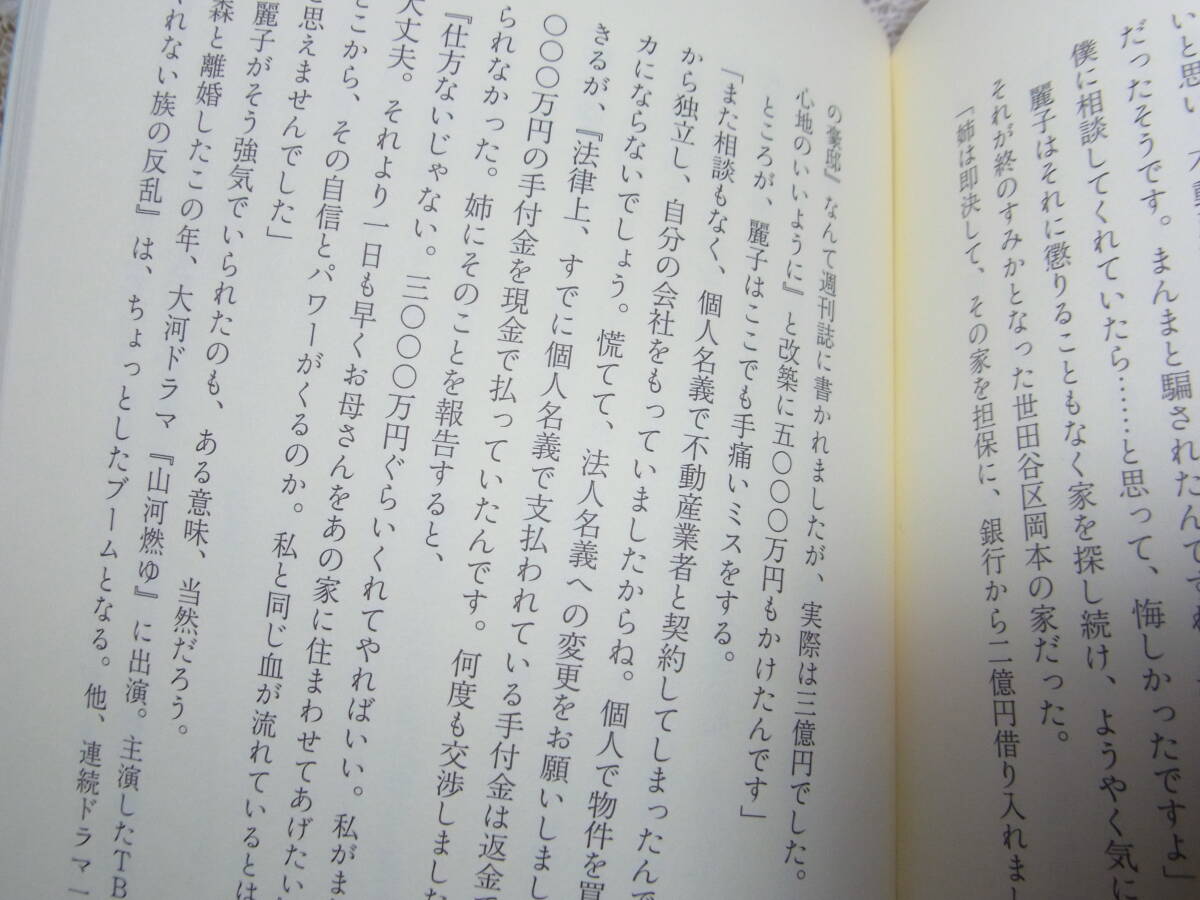 いと思い
だったそうです。まんまと騙されたんですね
僕に相談してくれていたら……と思って、悔しかったですよ」
麗子はそれに懲りることもなく家を探し続け、ようやく気に
それが終のすみかとなった世田谷区岡本の家だった。
「姉は即決して、その家を担保に、銀行から二億円借り入れまし
の豪邸』なんて週刊誌に書かれましたが、実際は三億円でした。
心地のいいように』と改築に五〇〇〇万円もかけたんです」
ところが、麗子はここでも手痛いミスをする。
「また相談もなく、個人名義で不動産業者と契約してしまったんで
から独立し、自分の会社をもっていましたからね。個人で物件を買
カにならないでしょう。慌てて、法人名義への変更をお願いしまし
きるが、『法律上、すでに個人名義で支払われている手付金は返金で
〇〇〇万円の手付金を現金で払っていたんです。何度も交渉しました
られなかった。姉にそのことを報告すると、
『仕方ないじゃない。三〇〇〇万円ぐらいくれてやればいい。私がま
大丈夫。それより一日も早くお母さんをあの家に住まわせてあげたい
どこから、その自信とパワーがくるのか。私と同じ血が流れているとは
と思えませんでした」
麗子がそう強気でいられたのも、ある意味、当然だろう。
森と離婚したこの年、大河ドラマ『山河燃ゆ』に出演。主演したTB
くれない族の反乱』は、ちょっとしたブームとなる。他、連続ドラマ